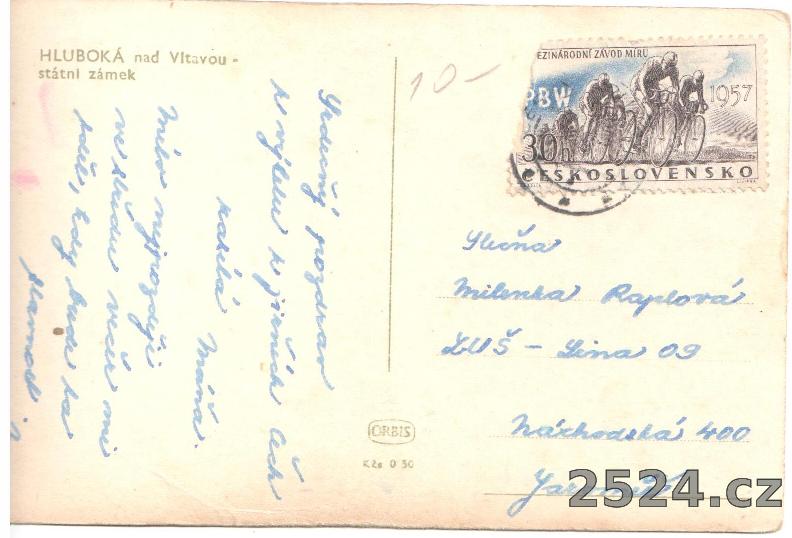 HLUBOKÁ nad Vltavou -
státní zámek
Srdečný pozdrav
z výletu z jižních Čech
Máňa.
Milo nejpozději
ve středu večer mi
bude ta
10-
MEZINÁRODNÍ ZÁVOD MÍRU
PBW
1957
30h
ČESKOSLOVENSKO
Slečna
Milenka Rajlová
ZUŠ - Lina 09
Náchodská 400
ORBIS
Kčs 0 50
2524.cz